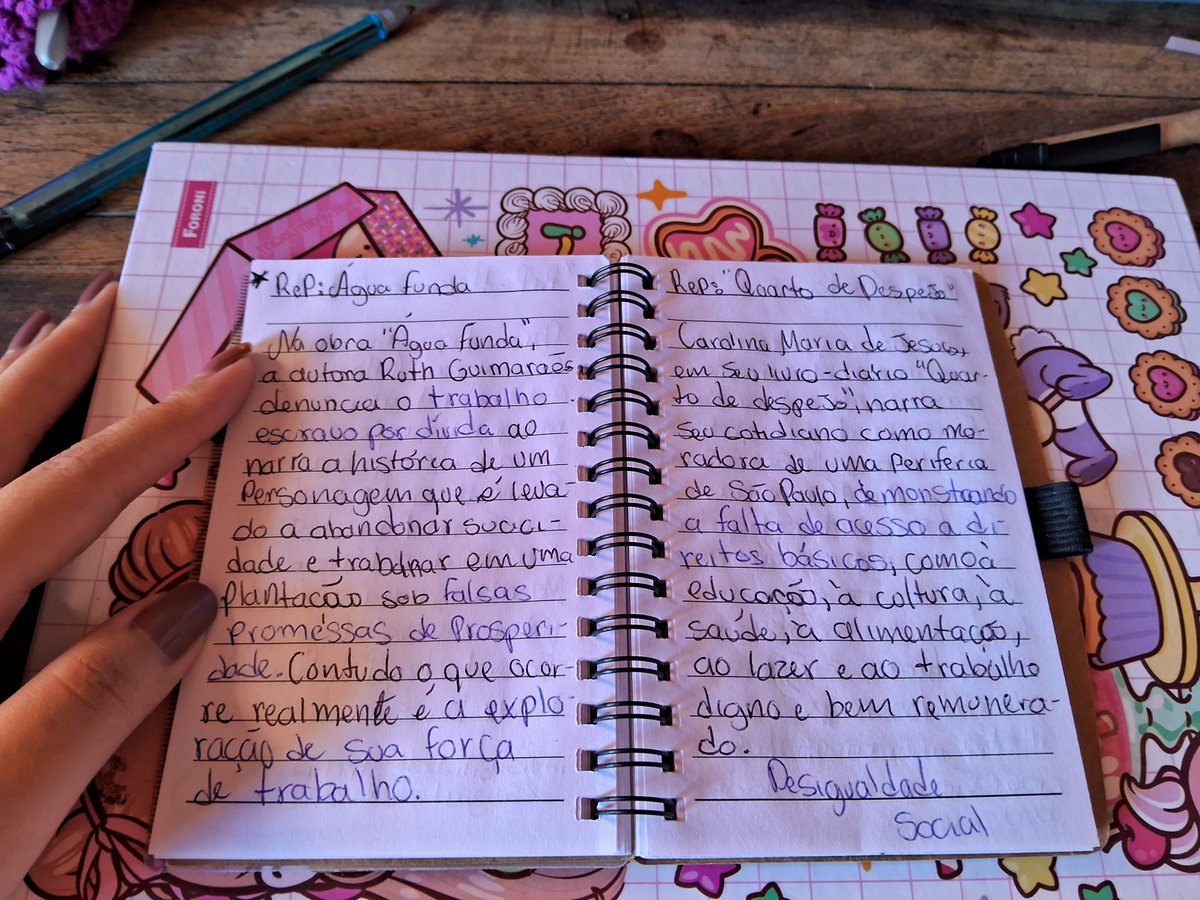 FORONI
* Rep: Água funda
Na obra "Água Funda",
a autora Ruth Guimarães
denuncia o trabalho
escravo por dívida ao
narra a história de um
personagem que é leva-
do a abandonar sua ci-
dade e trabalhar em uma
plantação sob falsas
promessas de prosperi-
dade. Contudo o que ocor-
re realmente é a explo-
ração de sua força
de trabalho.
Rep: "Quarto de Despejo"
Carolina Maria de Jesus,
em seu livro-diário "Quar-
to de despejo", narra
seu cotidiano como mo-
radora de uma periferia
de São Paulo, demonstrando
a falta de acesso a di-
reitos básicos, como à
educação, à cultura, à
saúde, à alimentação,
ao lazer e ao trabalho
digno e bem remunera-
do.
Desigualdade
Social